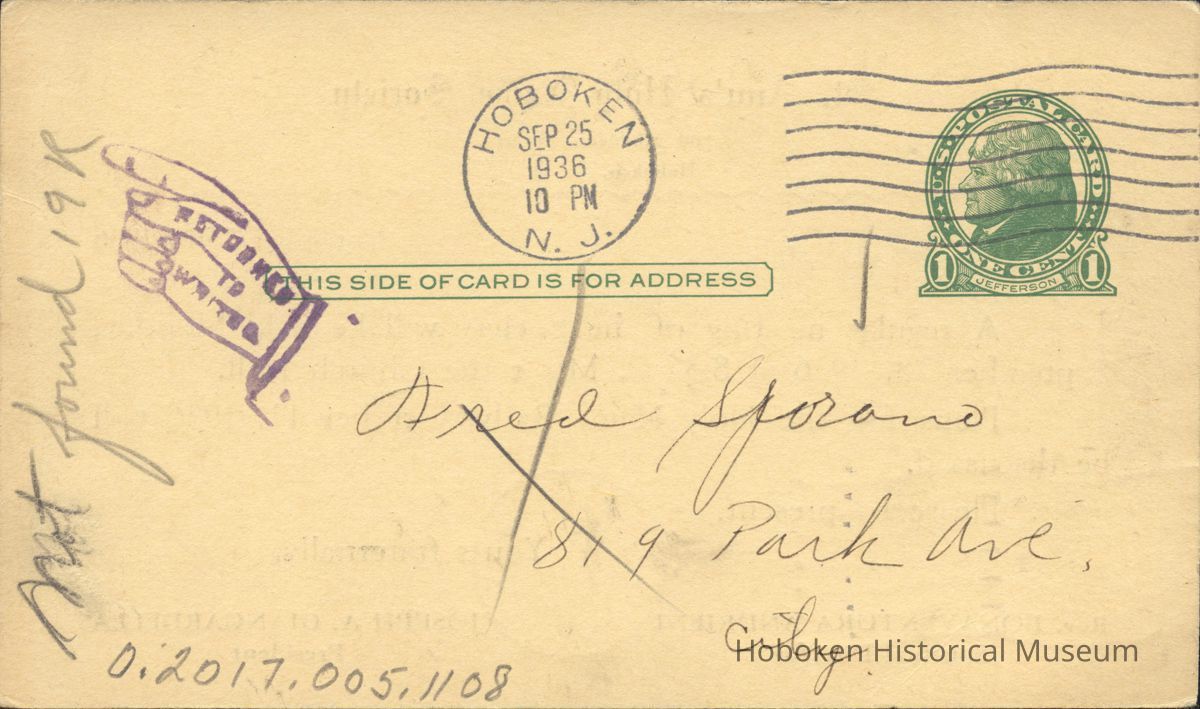 HOBOKEN
SEP 25
1936
10 PM
N. J.
U.S. POSTAL CARD
ONE CENT
1 1
JEFFERSON
THIS SIDE OF CARD IS FOR ADDRESS
RETURNED
TO
WRITER
Not found 19 R
Fred Sforano
819 Park Ave,
City
Hoboken Historical Museum
0.2017.005.1108